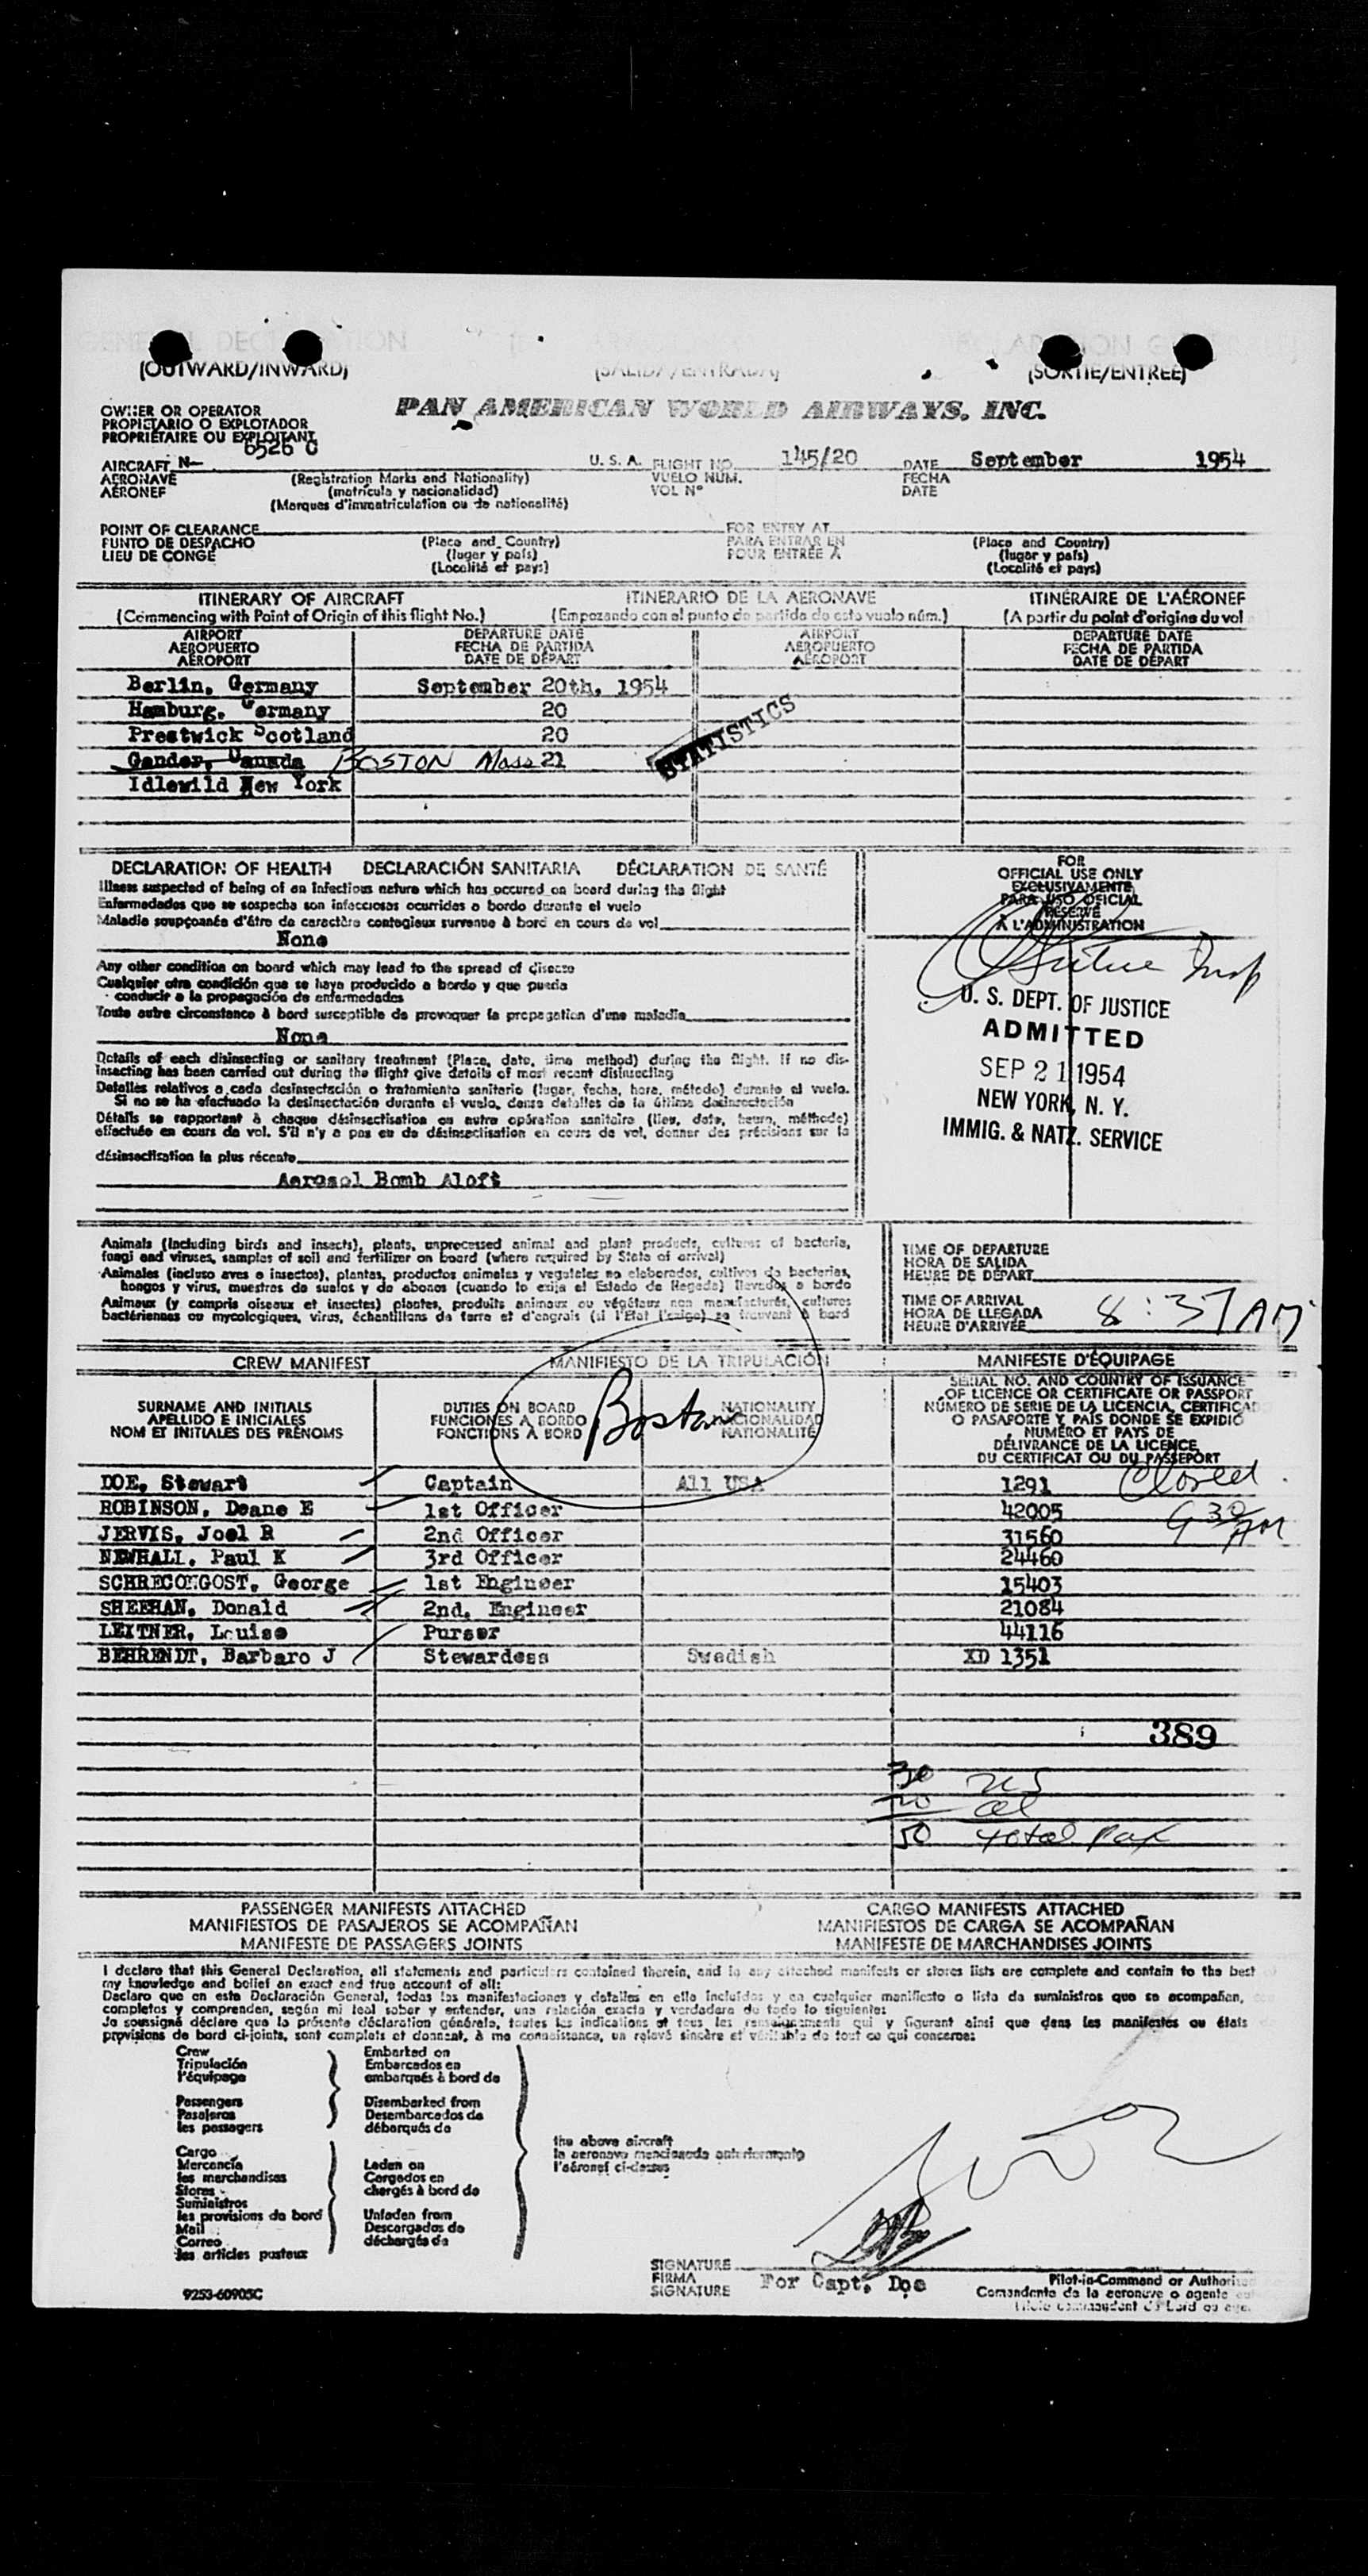 GENERAL DECLARATION
(OUTWARD/INWARD) (SALIDA/ENTRADA) (SORTIE/ENTREE)
OWNER OR OPERATOR
PROPIETARIO O EXPLOTADOR
PROPRIÉTAIRE OU EXPLOITANT
PAN AMERICAN WORLD AIRWAYS, INC.
6526 C
AIRCRAFT N— U. S. A. FLIGHT NO. 145/20 DATE September 1954
AERONAVE (Registration Marks and Nationality) VUELO NÚM. FECHA
AÉRONEF (matrícula y nacionalidad) VOL Nº DATE
(Marques d'immatriculation ou de nationalité)
POINT OF CLEARANCE FOR ENTRY AT
PUNTO DE DESPACHO (Place and Country) PARA ENTRAR EN (Place and Country)
LIEU DE CONGÉ (lugar y país) POUR ENTRÉE À (lugar y país)
(Localité et pays) (Localité et pays)
ITINERARY OF AIRCRAFT ITINERARIO DE LA AERONAVE ITINÉRAIRE DE L'AÉRONEF
(Commencing with Point of Origin of this flight No.) (Empezando con el punto de partida de este vuelo núm.) (A partir du point d'origine du vol
AIRPORT DEPARTURE DATE AIRPORT DEPARTURE DATE
AEROPUERTO FECHA DE PARTIDA AEROPUERTO FECHA DE PARTIDA
AÉROPORT DATE DE DÉPART AÉROPORT DATE DE DÉPART
Berlin, Germany September 20th, 1954
Hamburg, Germany 20
Prestwick Scotland 20
Gander, Canada BOSTON Mass 21
Idlewild New York
STATISTICS
DECLARATION OF HEALTH DECLARACIÓN SANITARIA DÉCLARATION DE SANTÉ
Illness suspected of being of an infectious nature which has occured on board during the flight
Enfermedades que se sospecha son infecciosas ocurridas a bordo durante el vuelo
Maladie soupçonnée d'être de caractère contagieux survenue à bord en cours de vol
None
Any other condition on board which may lead to the spread of disease
Cualquier otra condición que se haya producido a bordo y que pueda
conducir a la propagación de enfermedades
Toute autre circonstance à bord susceptible de provoquer la propagation d'une maladie
None
Details of each disinsecting or sanitary treatment (Place, date, time method) during the flight. If no dis-
insecting has been carried out during the flight give details of most recent disinsecting
Detalles relativos a cada desinsectación o tratamiento sanitario (lugar, fecha, hora, método) durante el vuelo.
Si no se ha efectuado la desinsectación durante el vuelo, dense detalles de la última desinsectación
Détails se rapportant à chaque désinsectisation ou autre opération sanitaire (lieu, date, heure, méthode)
effectuée en cours de vol. S'il n'y a pas eu de désinsectisation en cours de vol, donner des précisions sur la
désinsectisation la plus récente
Aerosol Bomb Aloft
FOR
OFFICIAL USE ONLY
EXCLUSIVAMENTE
PARA USO OFICIAL
RÉSERVÉ
À L'ADMINISTRATION
Insp
U. S. DEPT. OF JUSTICE
ADMITTED
SEP 21 1954
NEW YORK, N. Y.
IMMIG. & NATZ. SERVICE
Animals (including birds and insects), plants, unprocessed animal and plant products, cultures of bacteria,
fungi and viruses, samples of soil and fertilizer on board (where required by State of arrival)
Animales (incluso aves e insectos), plantas, productos animales y vegetales no elaborados, cultivos de bacterias,
hongos y virus, muestras de suelos y de abonos (cuando lo exija el Estado de llegada) llevados a bordo
Animaux (y compris oiseaux et insectes) plantes, produits animaux ou végétaux non manufacturés, cultures
bactériennes ou mycologiques, virus, échantillons de terre et d'engrais (si l'État l'exige) se trouvant à bord
TIME OF DEPARTURE
HORA DE SALIDA
HEURE DE DÉPART
TIME OF ARRIVAL
HORA DE LLEGADA
HEURE D'ARRIVÉE
8:37 AM
CREW MANIFEST MANIFIESTO DE LA TRIPULACIÓN MANIFESTE D'ÉQUIPAGE
SURNAME AND INITIALS
APELLIDO E INICIALES
NOM ET INITIALES DES PRÉNOMS
DUTIES ON BOARD
FUNCIONES A BORDO
FONCTIONS À BORD
Boston
NATIONALITY
NACIONALIDAD
NATIONALITÉ
SERIAL NO. AND COUNTRY OF ISSUANCE
OF LICENCE OR CERTIFICATE OR PASSPORT
NÚMERO DE SERIE DE LA LICENCIA, CERTIFICAD
O PASAPORTE Y PAÍS DONDE SE EXPIDIÓ
NUMÉRO ET PAYS DE
DÉLIVRANCE DE LA LICENCE,
DU CERTIFICAT OU DU PASSEPORT
DOE, Stewart Captain All USA 1291 Closed
ROBINSON, Deane E 1st Officer 42005 9 30 AM
JERVIS, Joel R 2nd Officer 31560
NEWHALL, Paul K 3rd Officer 24460
SCHRECONGOST, George 1st Engineer 15403
SHEEHAN, Donald 2nd. Engineer 21084
LEITNER, Louise Purser 44116
BEHRENDT, Barbaro J Stewardess Swedish XD 1351
389
30 US
20 al
50 total Pax
PASSENGER MANIFESTS ATTACHED CARGO MANIFESTS ATTACHED
MANIFIESTOS DE PASAJEROS SE ACOMPAÑAN MANIFIESTOS DE CARGA SE ACOMPAÑAN
MANIFESTE DE PASSAGERS JOINTS MANIFESTE DE MARCHANDISES JOINTS
I declare that this General Declaration, all statements and particulars contained therein, and in any attached manifests or stores lists are complete and contain to the best
my knowledge and belief an exact and true account of all:
Declaro que en esta Declaración General, todas las manifestaciones y detalles en ella incluídos y en cualquier manifiesto o lista de suministros que se acompañan,
completos y comprenden, según mi leal saber y entender, una relación exacta y verdadera de todo lo siguiente:
Je soussigné déclare que la présente déclaration générale, toutes les indications et tous les renseignements qui y figurent ainsi que dans les manifestes ou états
provisions de bord ci-joints, sont complets et donnent, à ma connaissance, un relevé sincère et véritable de tout ce qui concerne:
Crew
Tripulación
l'équipage
Embarked on
Embarcados en
embarqués à bord de
Passengers
Pasajeros
les passagers
Disembarked from
Desembarcados de
débarqués de
the above aircraft
la aeronave mencionada anteriormente
l'aéronef ci-dessus
Cargo
Mercancía
les marchandises
Stores
Suministros
les provisions de bord
Mail
Correo
les articles postaux
Laden on
Cargados en
chargés à bord de
Unladen from
Descargados de
déchargés de
SIGNATURE
FIRMA
SIGNATURE
For Capt. Doe
Pilot-in-Command or Authorised
Comandante de la aeronave o agente
9253-60905C